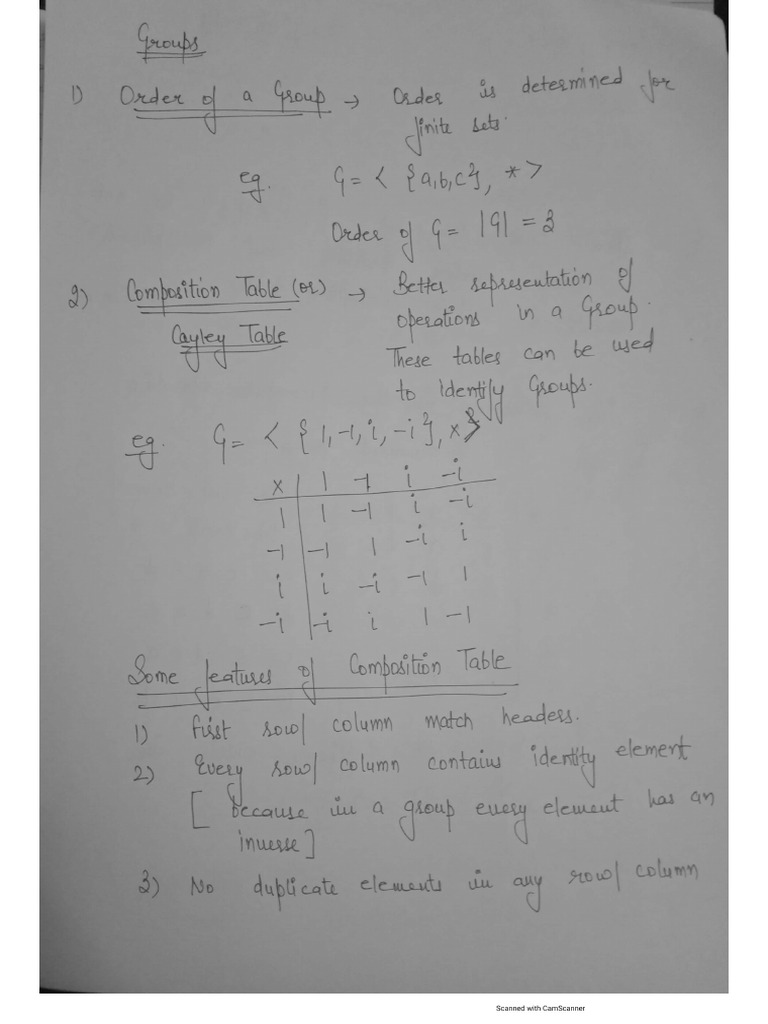 Groups
1) Order of a Group → Order is determined for
finite sets.
eg. G = < {a,b,c}, * >
Order of G = |G| = 3
2) Composition Table (or) → Better representation of
Cayley Table operations in a Group.
These tables can be used
to identify Groups.
eg. G = < {1, -1, i, -i}, x >
x | 1 -1 i -i
1 | 1 -1 i -i
-1 | -1 1 -i i
i | i -i -1 1
-i | -i i 1 -1
Some features of Composition Table
1) first row/ column match headers.
2) Every row/ column contains identity element
[ because in a group every element has an
inverse]
3) No duplicate elements in any row/ column
Scanned with CamScanner